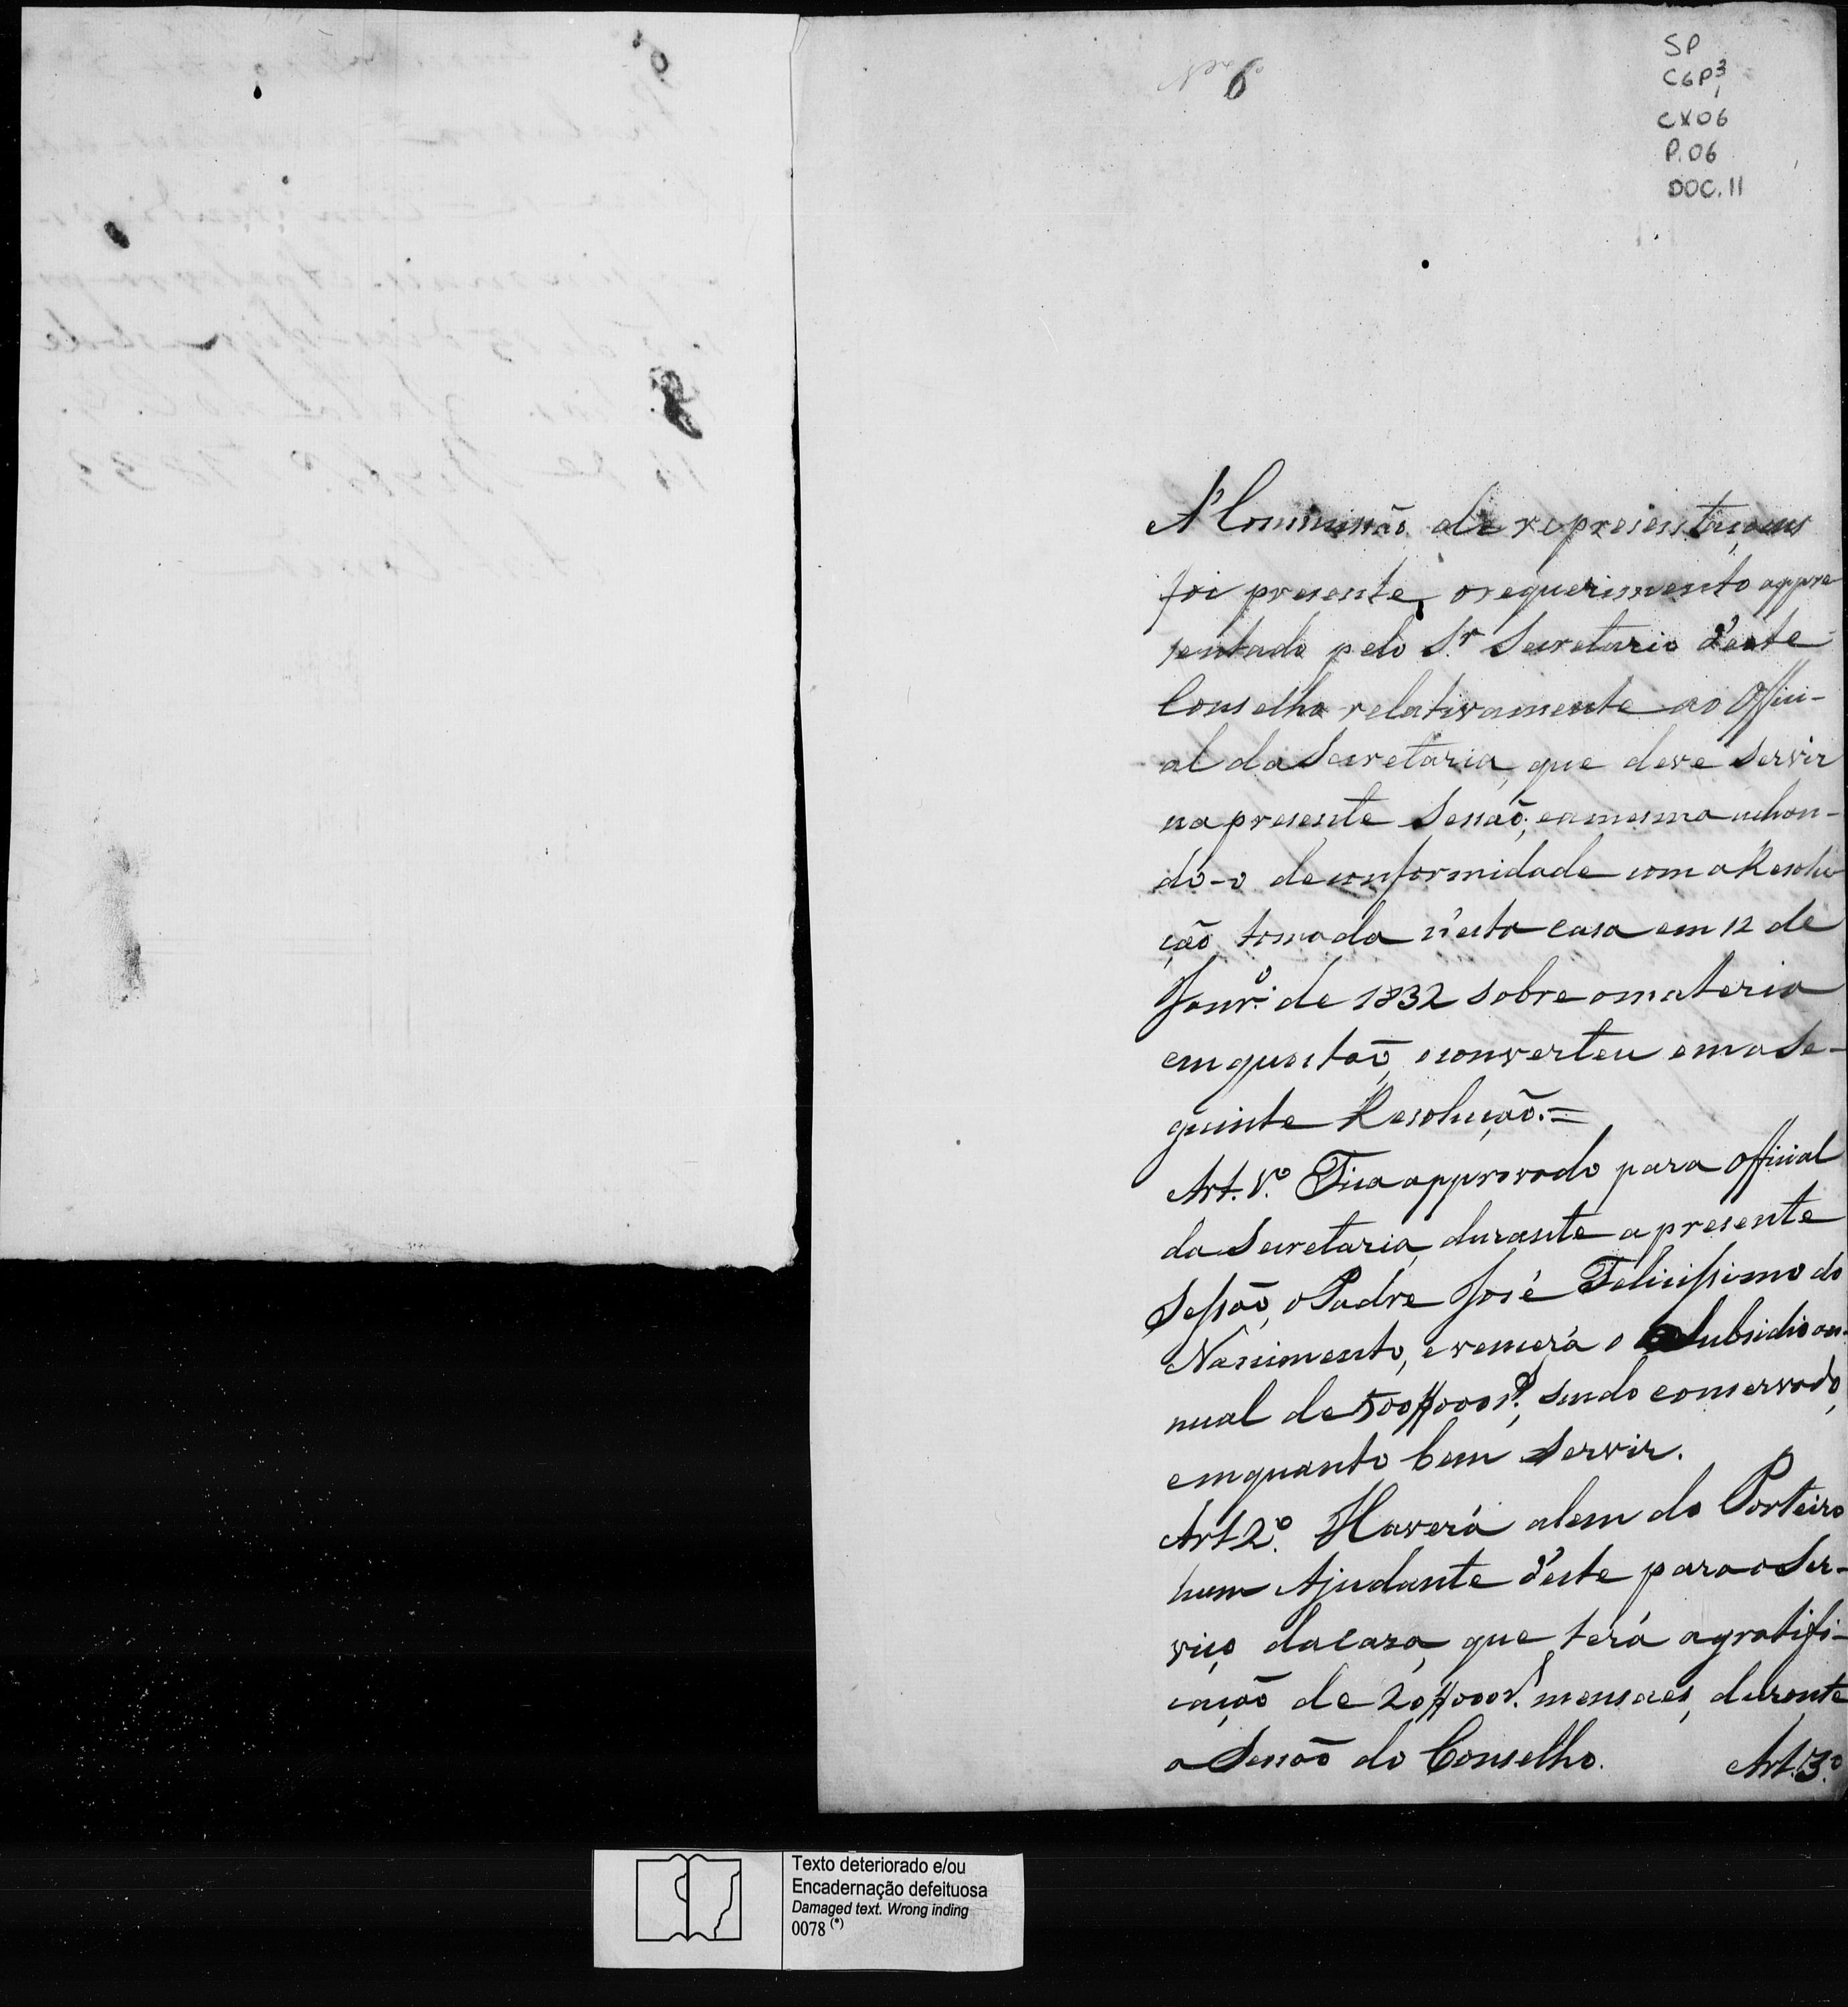 Nº 6
SP
CGP3,
CX06
P.06
DOC.11
A' Commissão de representaçoens
foi presente, o requerimento appre
sentado pelo Sr. Secretario d'este
Conselho relativamente ao Offici-
al da Secretaria, que deve servir
na presente Sessão; e a mesma achan-
do-o de conformidade com a Resolu
ção tomada n'esta casa em 12 de
Janrº. de 1832 sobre a materia
em questão, o converteu em a Se-
guinte Resolução.=
Art. 1º. Fica approvado para official
da Secretaria, durante a presente
Sessão, o Padre José Felicissimo do
Nascimento, e vencerá o Subsidio an-
nual de 500$000 rs., sendo conservado,
emquanto bem servir.
Art 2º. Haverá alem do Porteiro
hum Ajudante d'este para o Ser-
viço da caza, que terá a gratifi-
cação de 20$000 r. mensaes, durante
a Sessão do Conselho. Art. 3.º
Texto deteriorado e/ou
Encadernação defeituosa
Damaged text. Wrong inding
0078 (*)